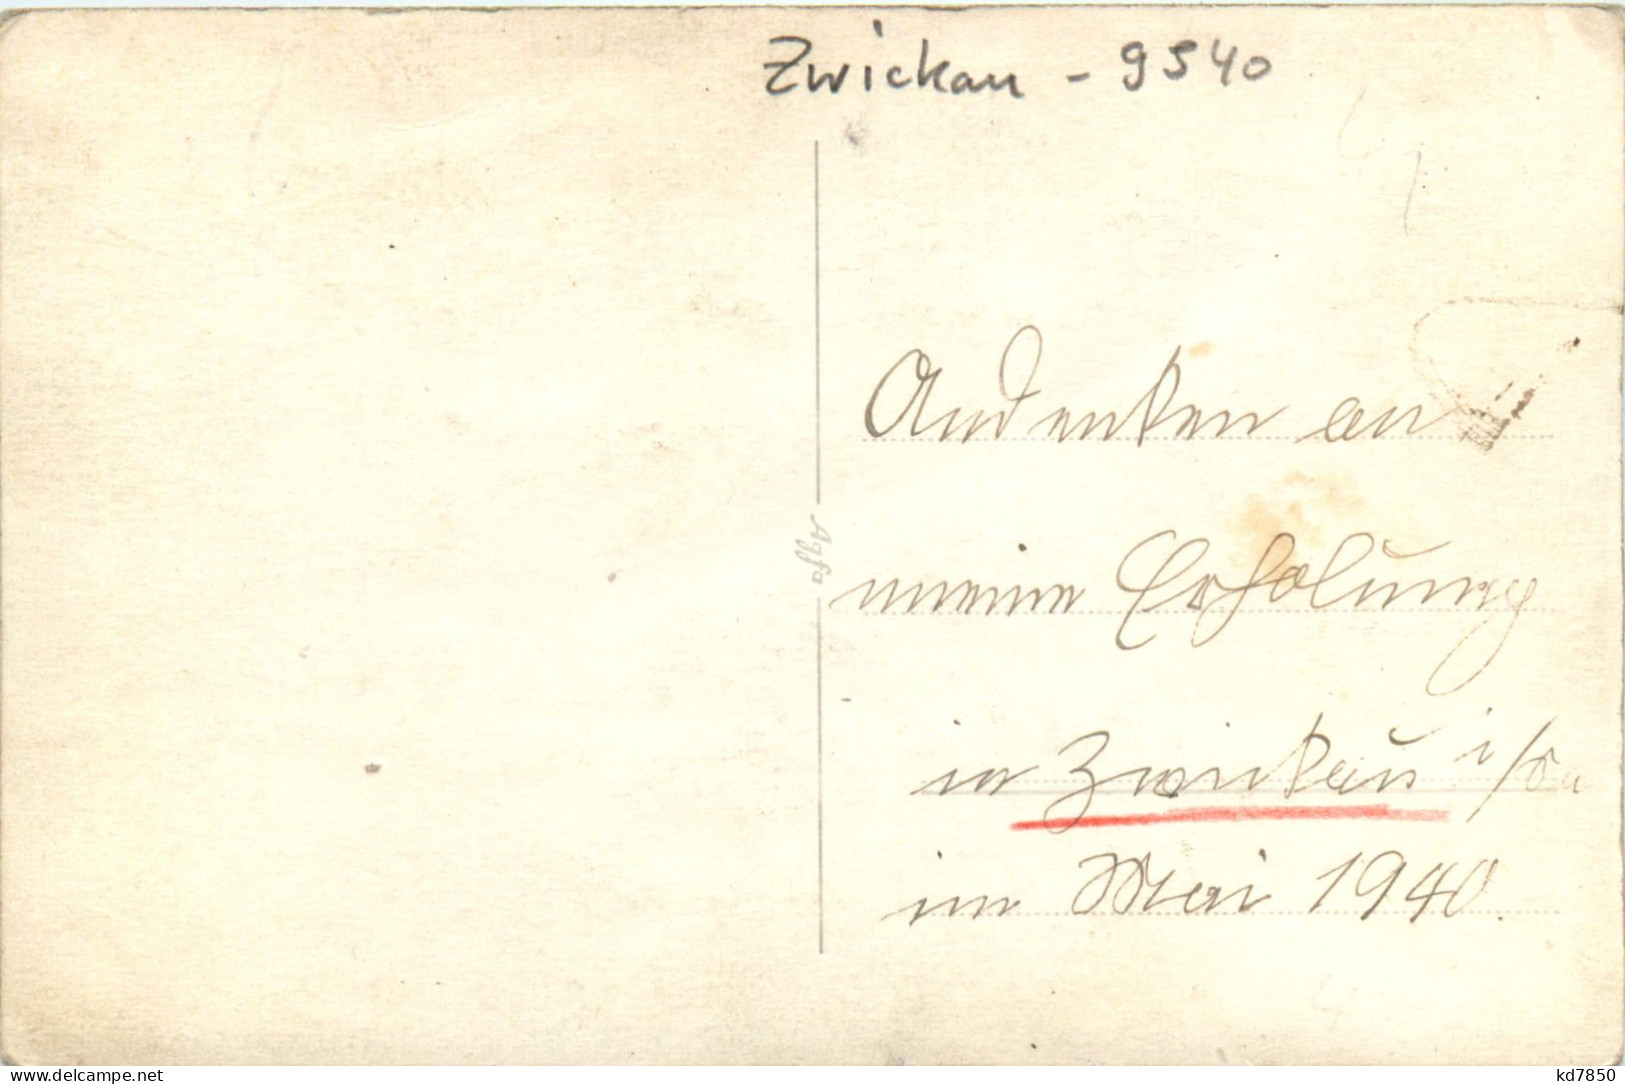 Zwickau - 9540
Andenken an
meine Erholung
in Zwickau i/Sa
im Mai 1940.
Agfa
www.delcampe.net
kd7850